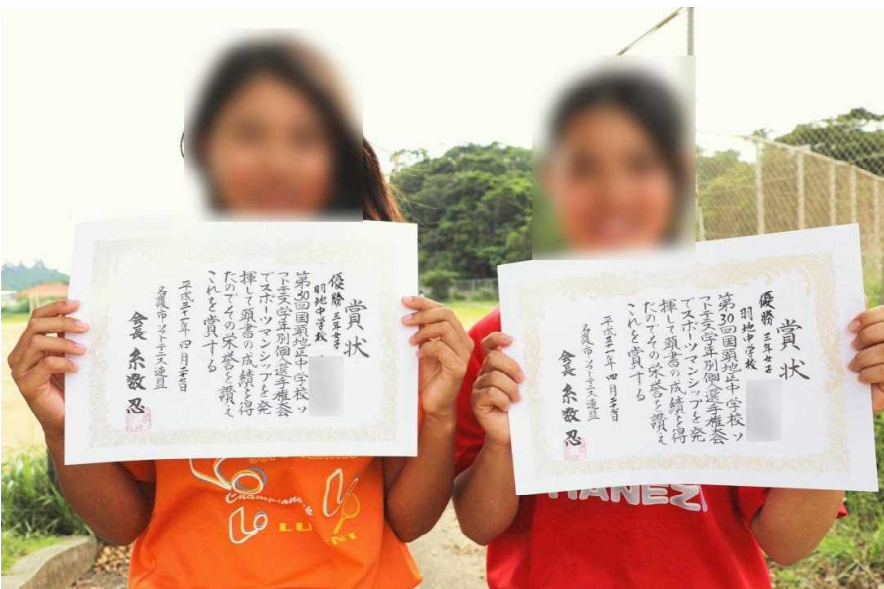 賞状
優勝 三年女子
羽地中学校
第30回国頭地区中学校ソ
フトテニス学年別個人選手権大会
でスポーツマンシップを発
揮して頭書の成績を得
たのでその栄誉を讃え
これを賞する
平成三十一年四月二十七日
名護市ソフトテニス連盟
会長 糸数忍
賞状
優勝 三年女子
羽地中学校
第30回国頭地区中学校ソ
フトテニス学年別個人選手権大会
でスポーツマンシップを発
揮して頭書の成績を得
たのでその栄誉を讃え
これを賞する
平成三十一年四月二十七日
名護市ソフトテニス連盟
会長 糸数忍
HANEZ